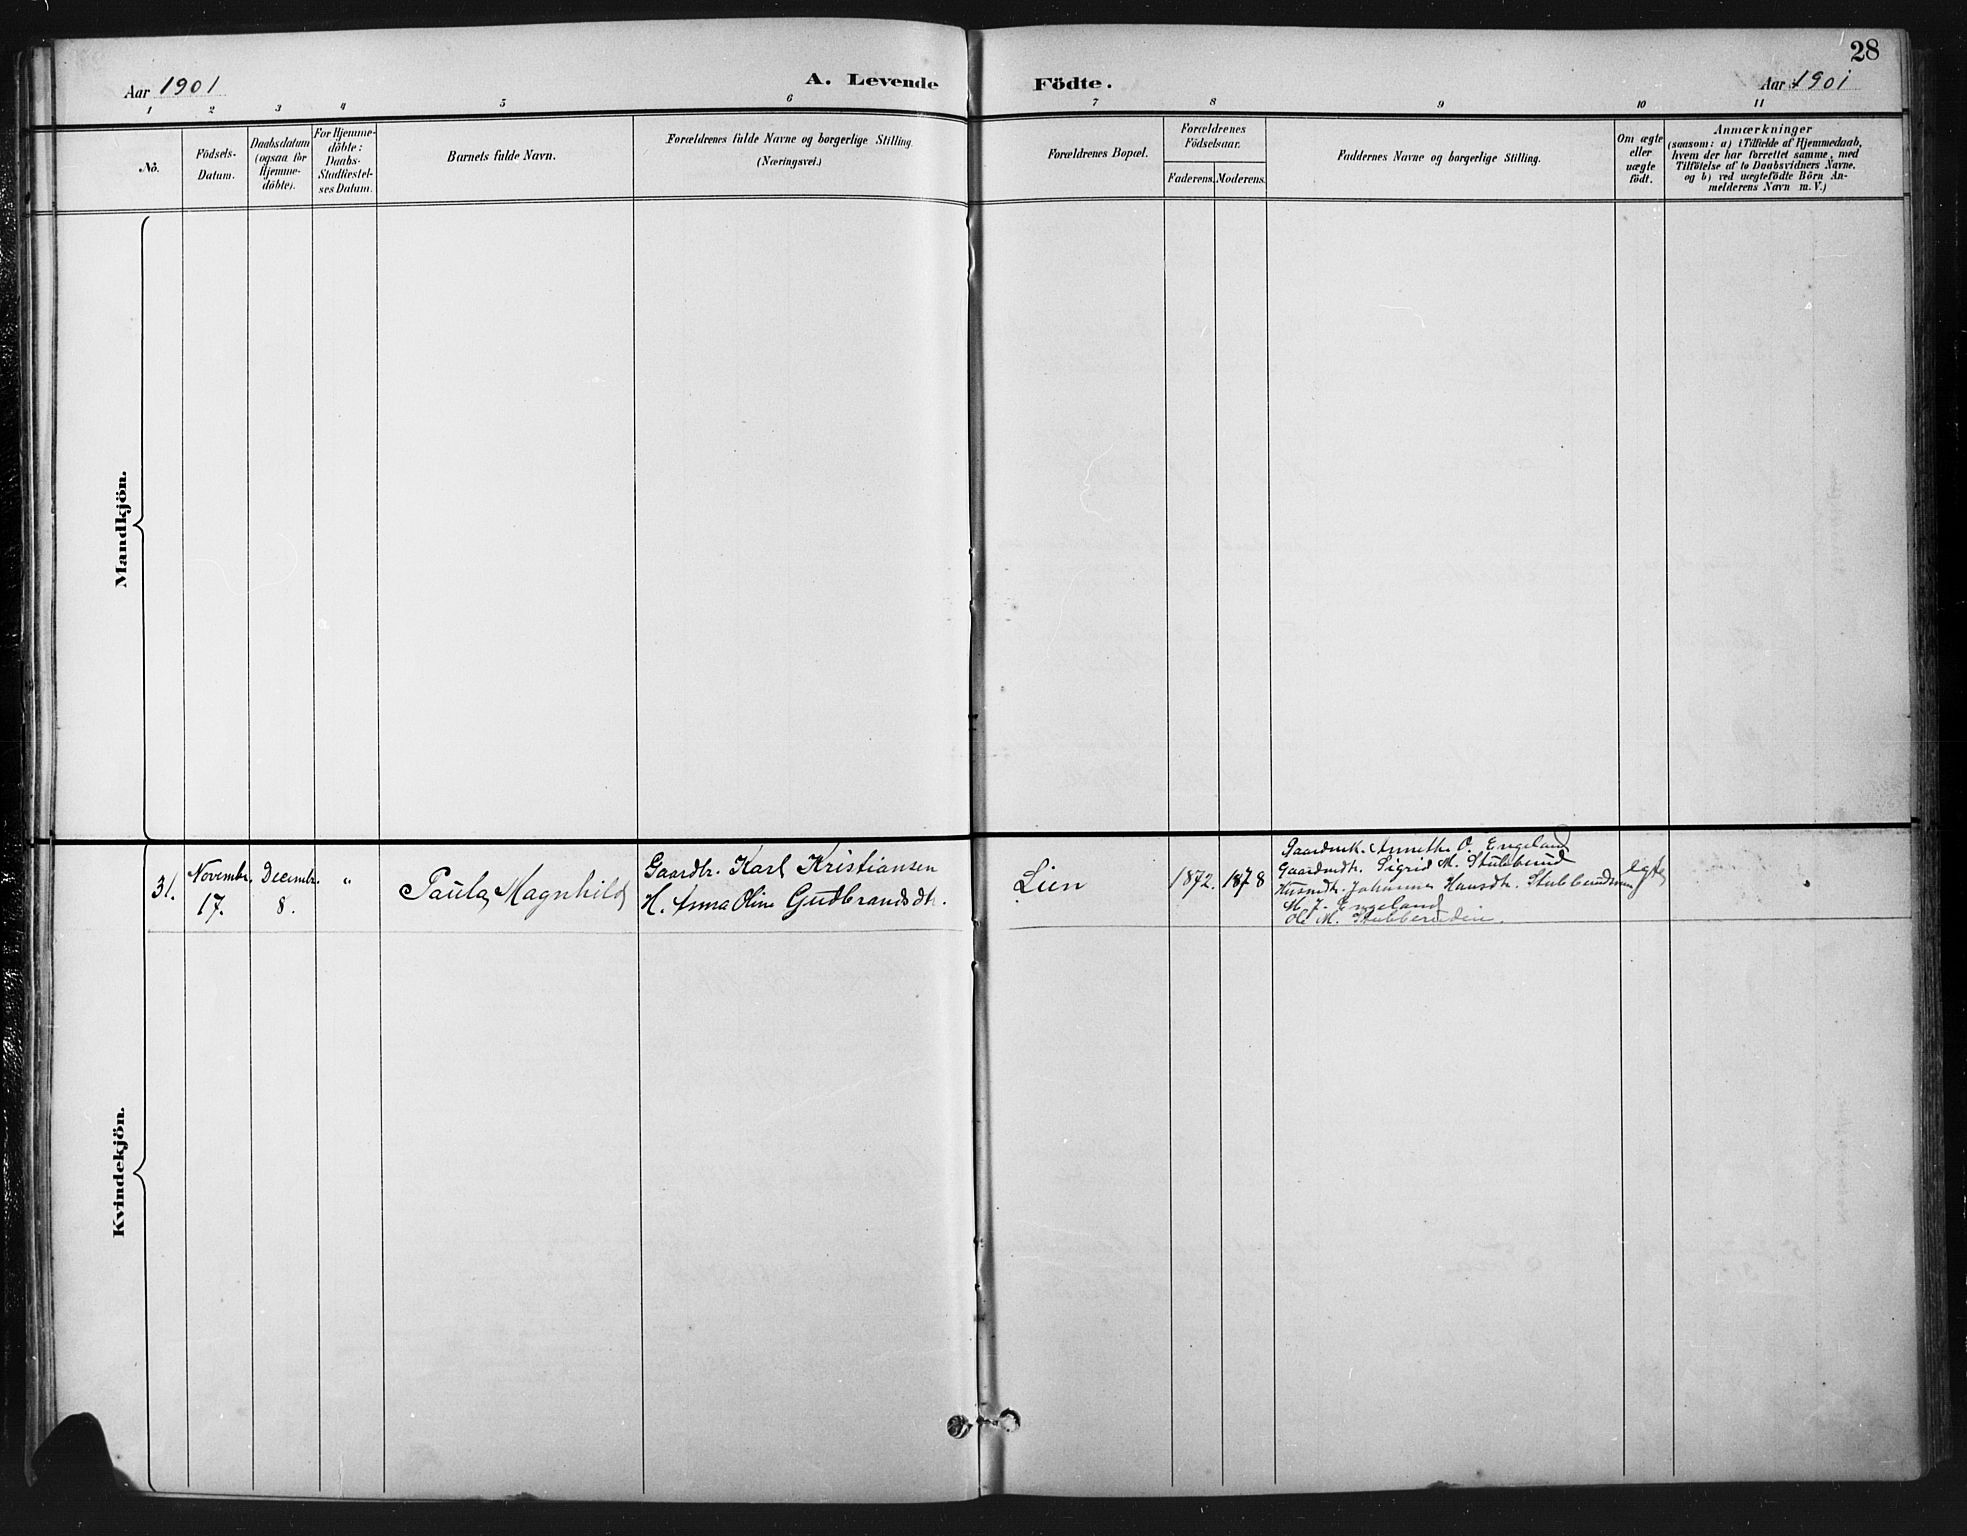 28
Aar 1901
A. Levende Födte.
Aar 1901
1 2 3 4 5 6 7 8 9 10 11
No.
Födsels-
Datum.
Daabsdatum
(ogsaa for
Hjemme-
döbte).
For Hjemme-
döbte:
Daabs-
Stadfæstel-
ses Datum.
Barnets fulde Navn.
Forældrenes fulde Navne og borgerlige Stilling.
(Næringsvei.)
Forældrenes Bopæl.
Forældrenes
Födselsaar.
Faderens. Moderens.
Faddernes Navne og borgerlige Stilling.
Om ægte
eller
uægte
födt.
Anmærkninger
(saasom: a) i Tilfælde af Hjemmedaab,
hvem der har forrettet samme, med
Tilföielse af to Daabsvidners Navne.
og b) ved uægtefödte Börn An-
melderens Navn m. V.)
Mandkjön.
Kvindekjön.
31.
Novembr.
17.
Decembr.
8.
"
Paula Magnhild
Gaardbr. Karl Kristiansen
H. Anna Oline Gudbrandsdtr.
Lien
1872.
1878
Gaardmk. Annethe O. Engeland
Gaardmdtr. Sigrid M. Stubberud
Husmdtr. Johanne Hansdtr. Stubberudmoen
M. J. Engeland
Ole M. Stubberudeie.
egte